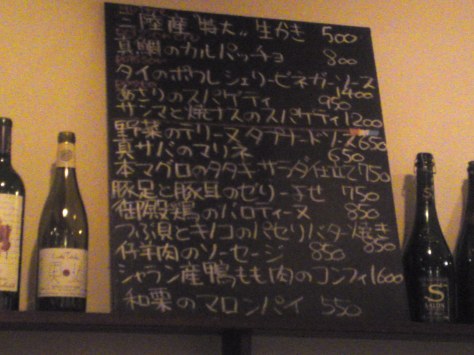 三陸産"特大"生かき 500
真鯛のカルパッチョ 800
タイのポワレ シェリービネガーソース 1400
あさりのスパゲティ 950
サンマと焼ナスのスパゲティ 1200
野菜のテリーヌ タプナードソース 650
真サバのマリネ 650
本マグロのタタキ サラダ仕立 750
豚足と豚耳のゼリーよせ 750
御殿鶏のバロティーヌ 850
つぶ貝とキノコのパセリバター焼き 850
仔羊肉のソーセージ 850
シャラン産鴨もも肉のコンフィ 1600
和栗のマロンパイ 550
S